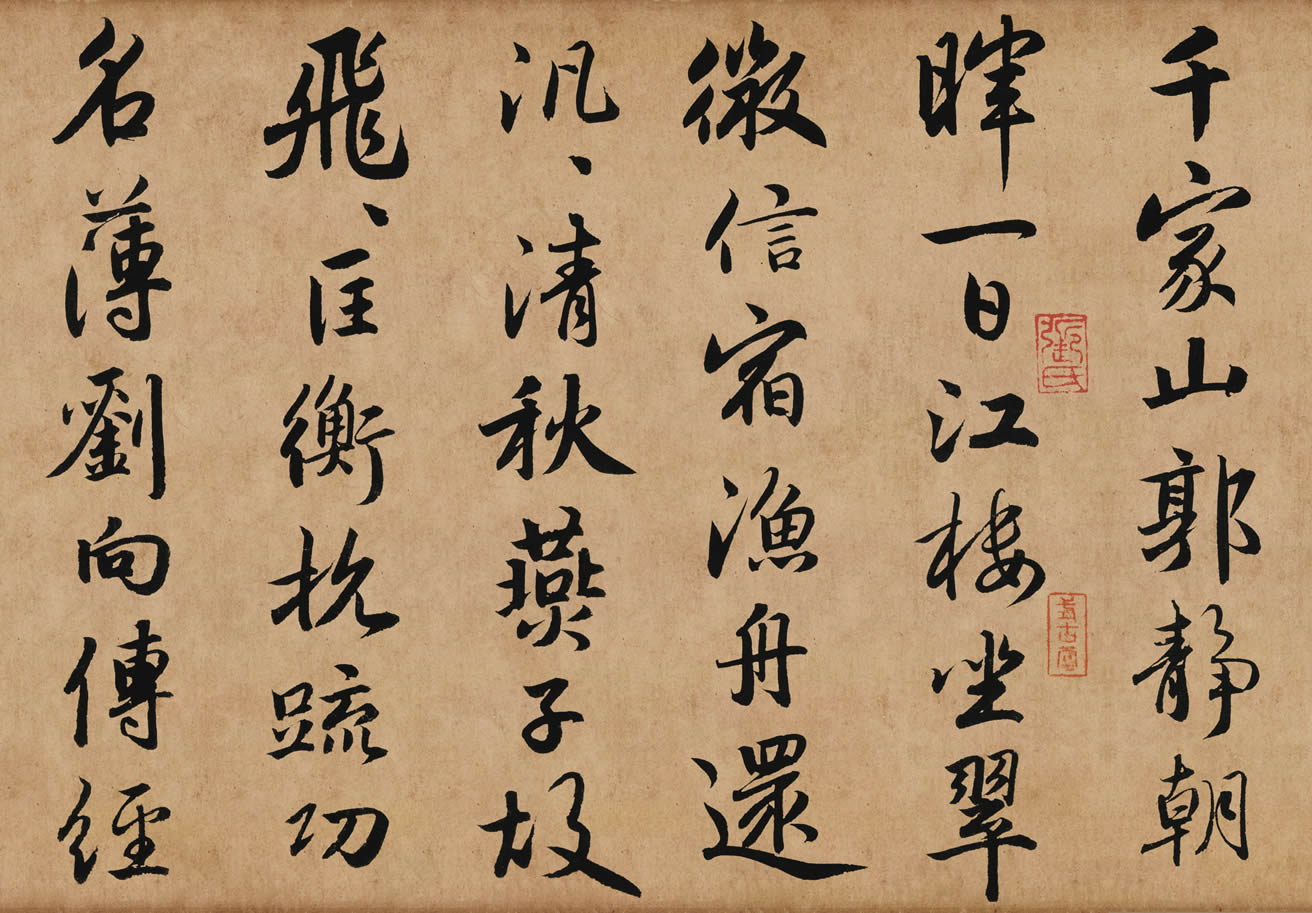 千家山郭靜朝
暉一日江樓坐翠
微信宿漁舟還
汎、清秋燕子故
飛、匡衡抗疏功
名薄劉向傳經